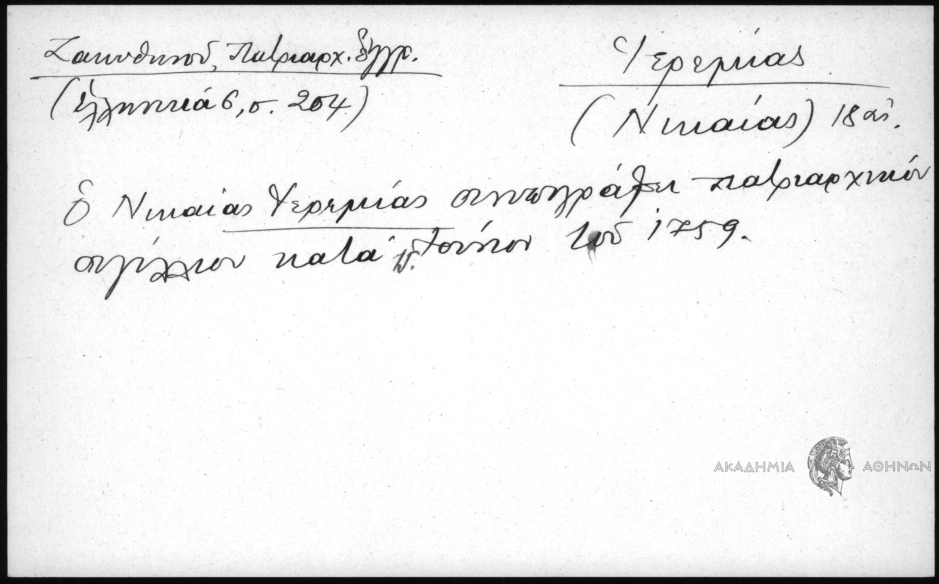 Ζακυθηνοῦ, Πατριαρχ. ἔγγρ.
(Ἑλληνικά 6, σ. 204)
Ἱερεμίας
(Νικαίας) 18 αἰ.
Ὁ Νικαίας Ἱερεμίας συνυπογράφει πατριαρχικόν
σιγίλλιον κατά τ. Ἰούνιον τοῦ 1759.
ΑΚΑΔΗΜΙΑ ΑΘΗΝΩΝ